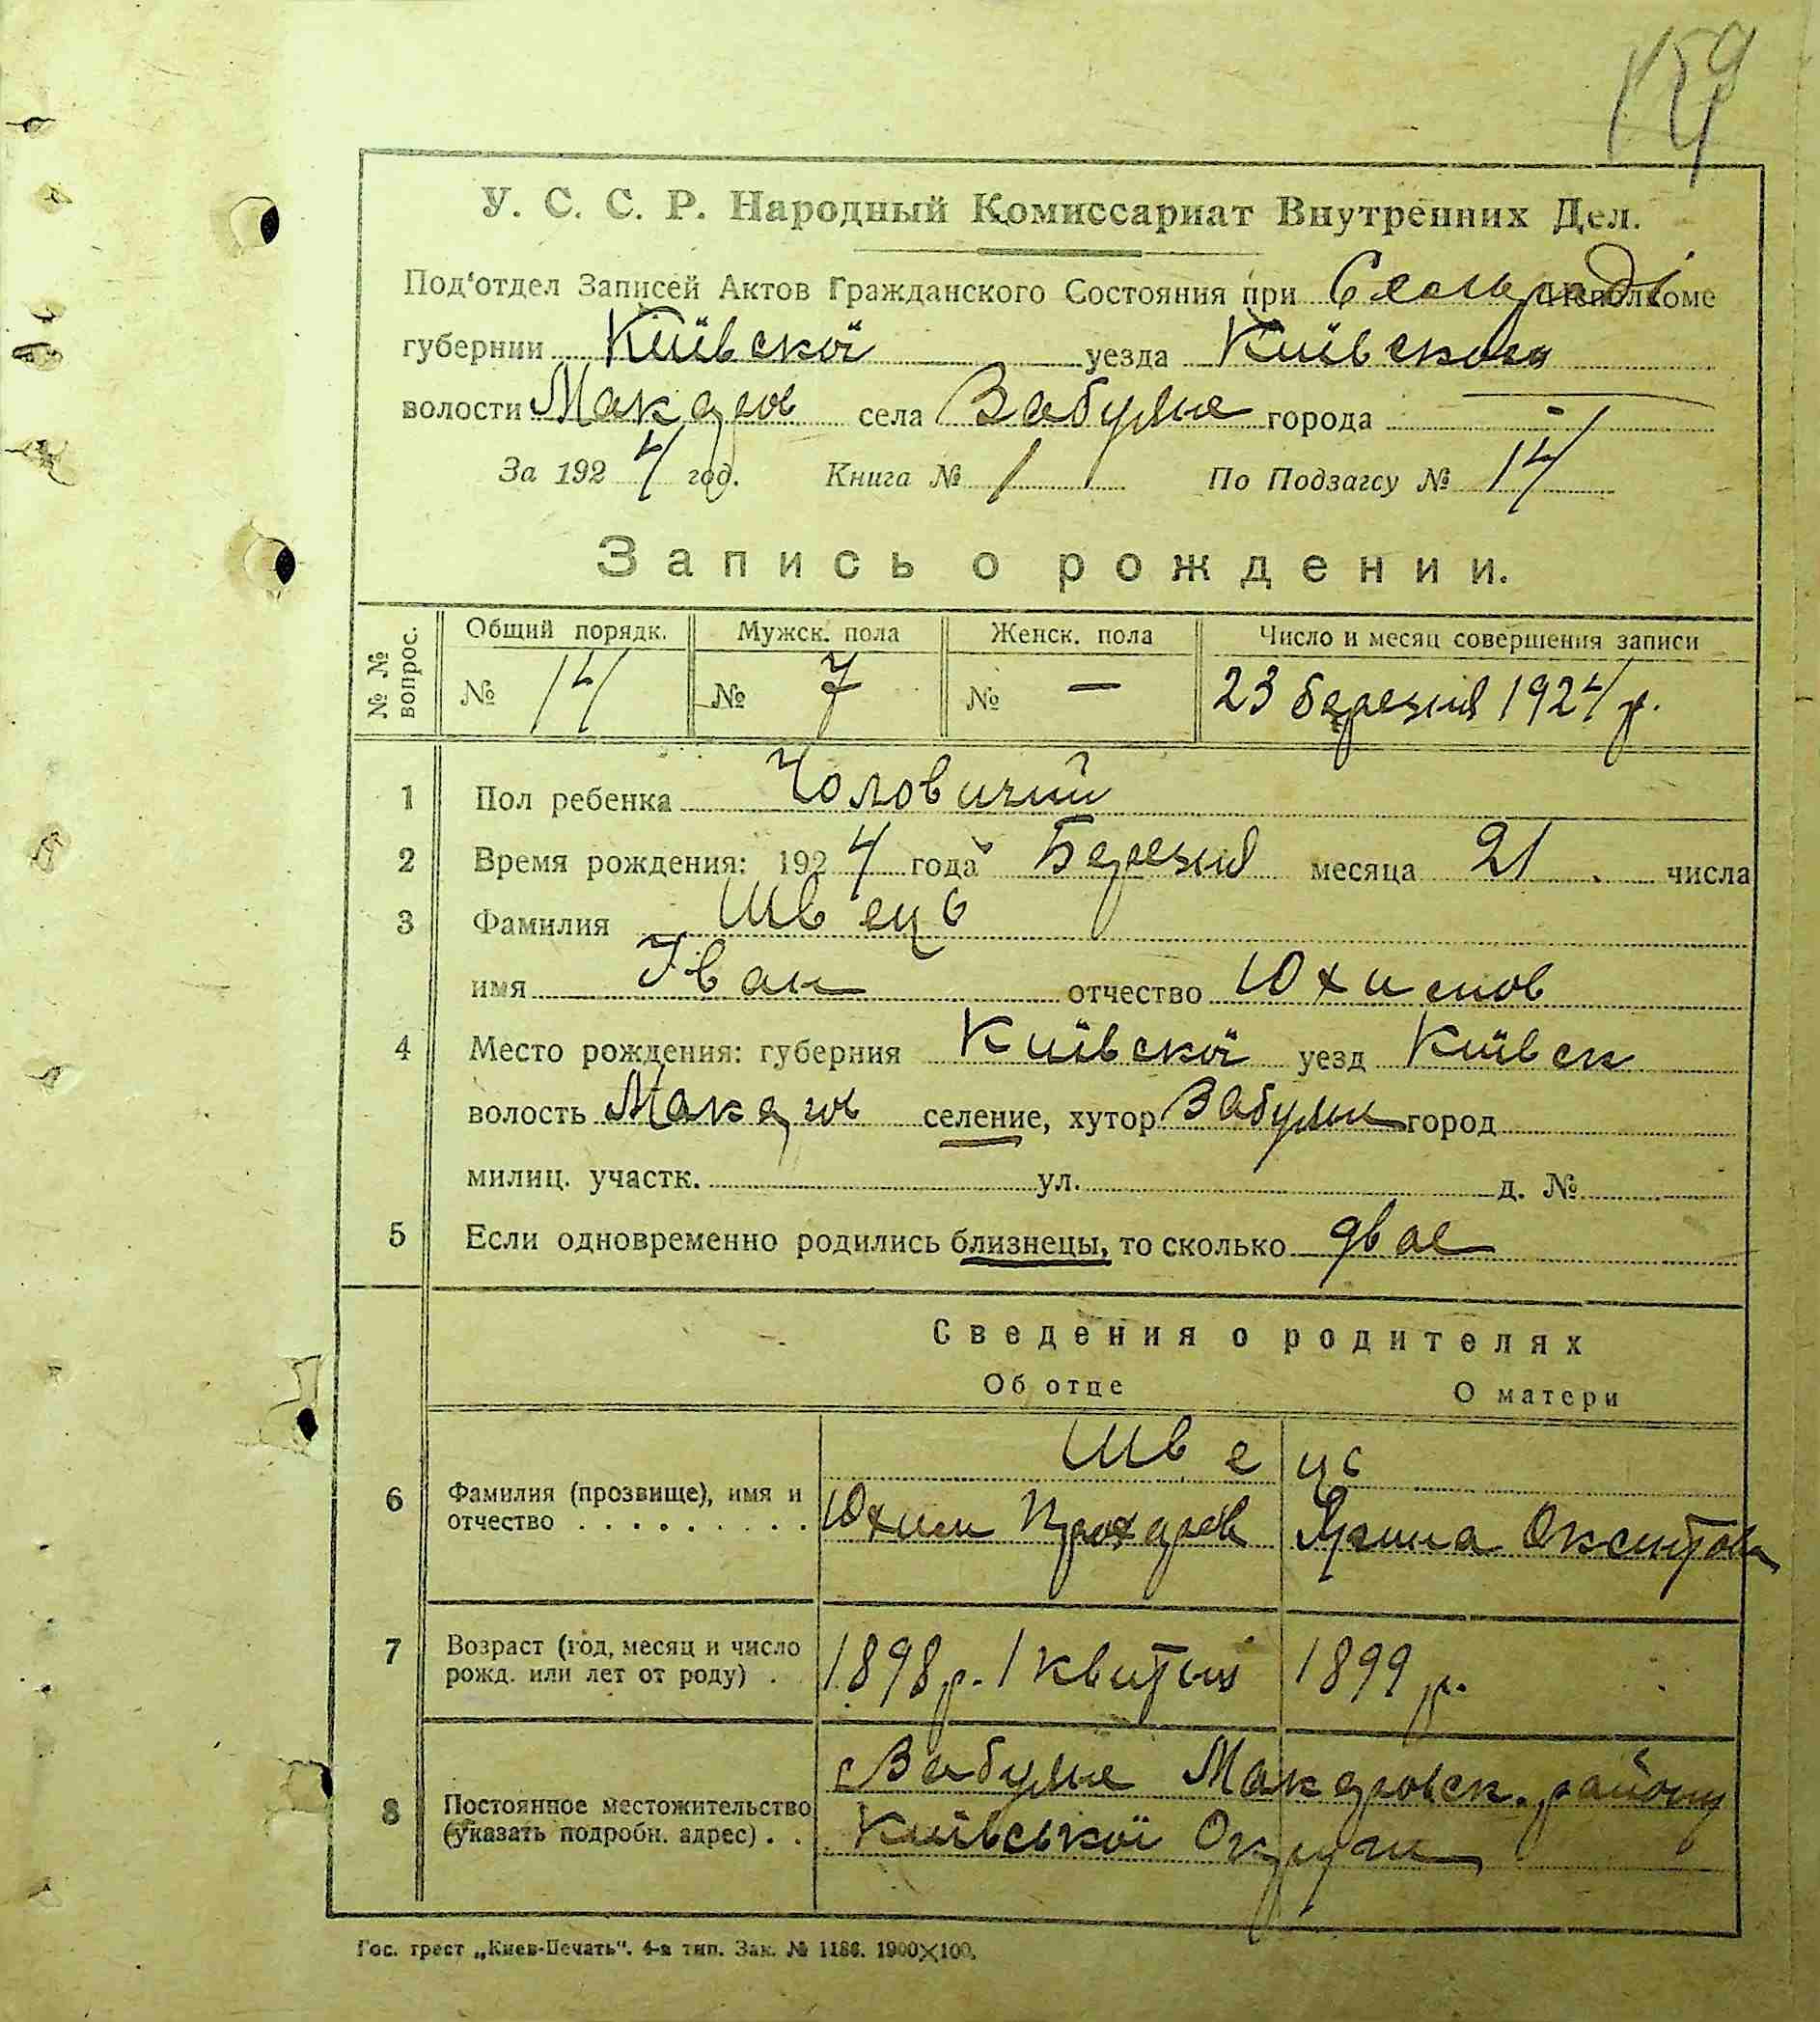 159
У. С. С. Р. Народный Комиссариат Внутренних Дел.
Под'отдел Записей Актов Гражданского Состояния при Сельраді Исполкоме
губернии Київскої уезда Київского
волости Макаров села Забуяне города —
За 1924 год. Книга № 1 По Подзагсу № 14
Запись о рождении.
№ № вопрос. Общий порядк. Мужск. пола Женск. пола Число и месяц совершения записи
№ 14 № 7 № — 23 березня 1924 р.
1 Пол ребенка Чоловичий
2 Время рождения: 1924 года Березня месяца 21 числа
3 Фамилия Швець
имя Іван отчество Юхимов
4 Место рождения: губерния Київскої уезд Київск
волость Макаров селение, хутор Забуян город
милиц. участк. ул. д. №
5 Если одновременно родились близнецы, то сколько двае
Сведения о родителях
Об отце О матери
Швець
6 Фамилия (прозвище), имя и
отчество . . . . . . . . . Юхим Прохоров Ярина Оксентова
7 Возраст (год, месяц и число
рожд. или лет от роду) . . 1898 р. 1 квітня 1899 р.
с Забуяне Макаровск. району
8 Постоянное местожительство
(указать подробн. адрес) . . Київської Округи
Гос. трест „Киев-Печать". 4-я тип. Зак. № 1186. 1900×100.